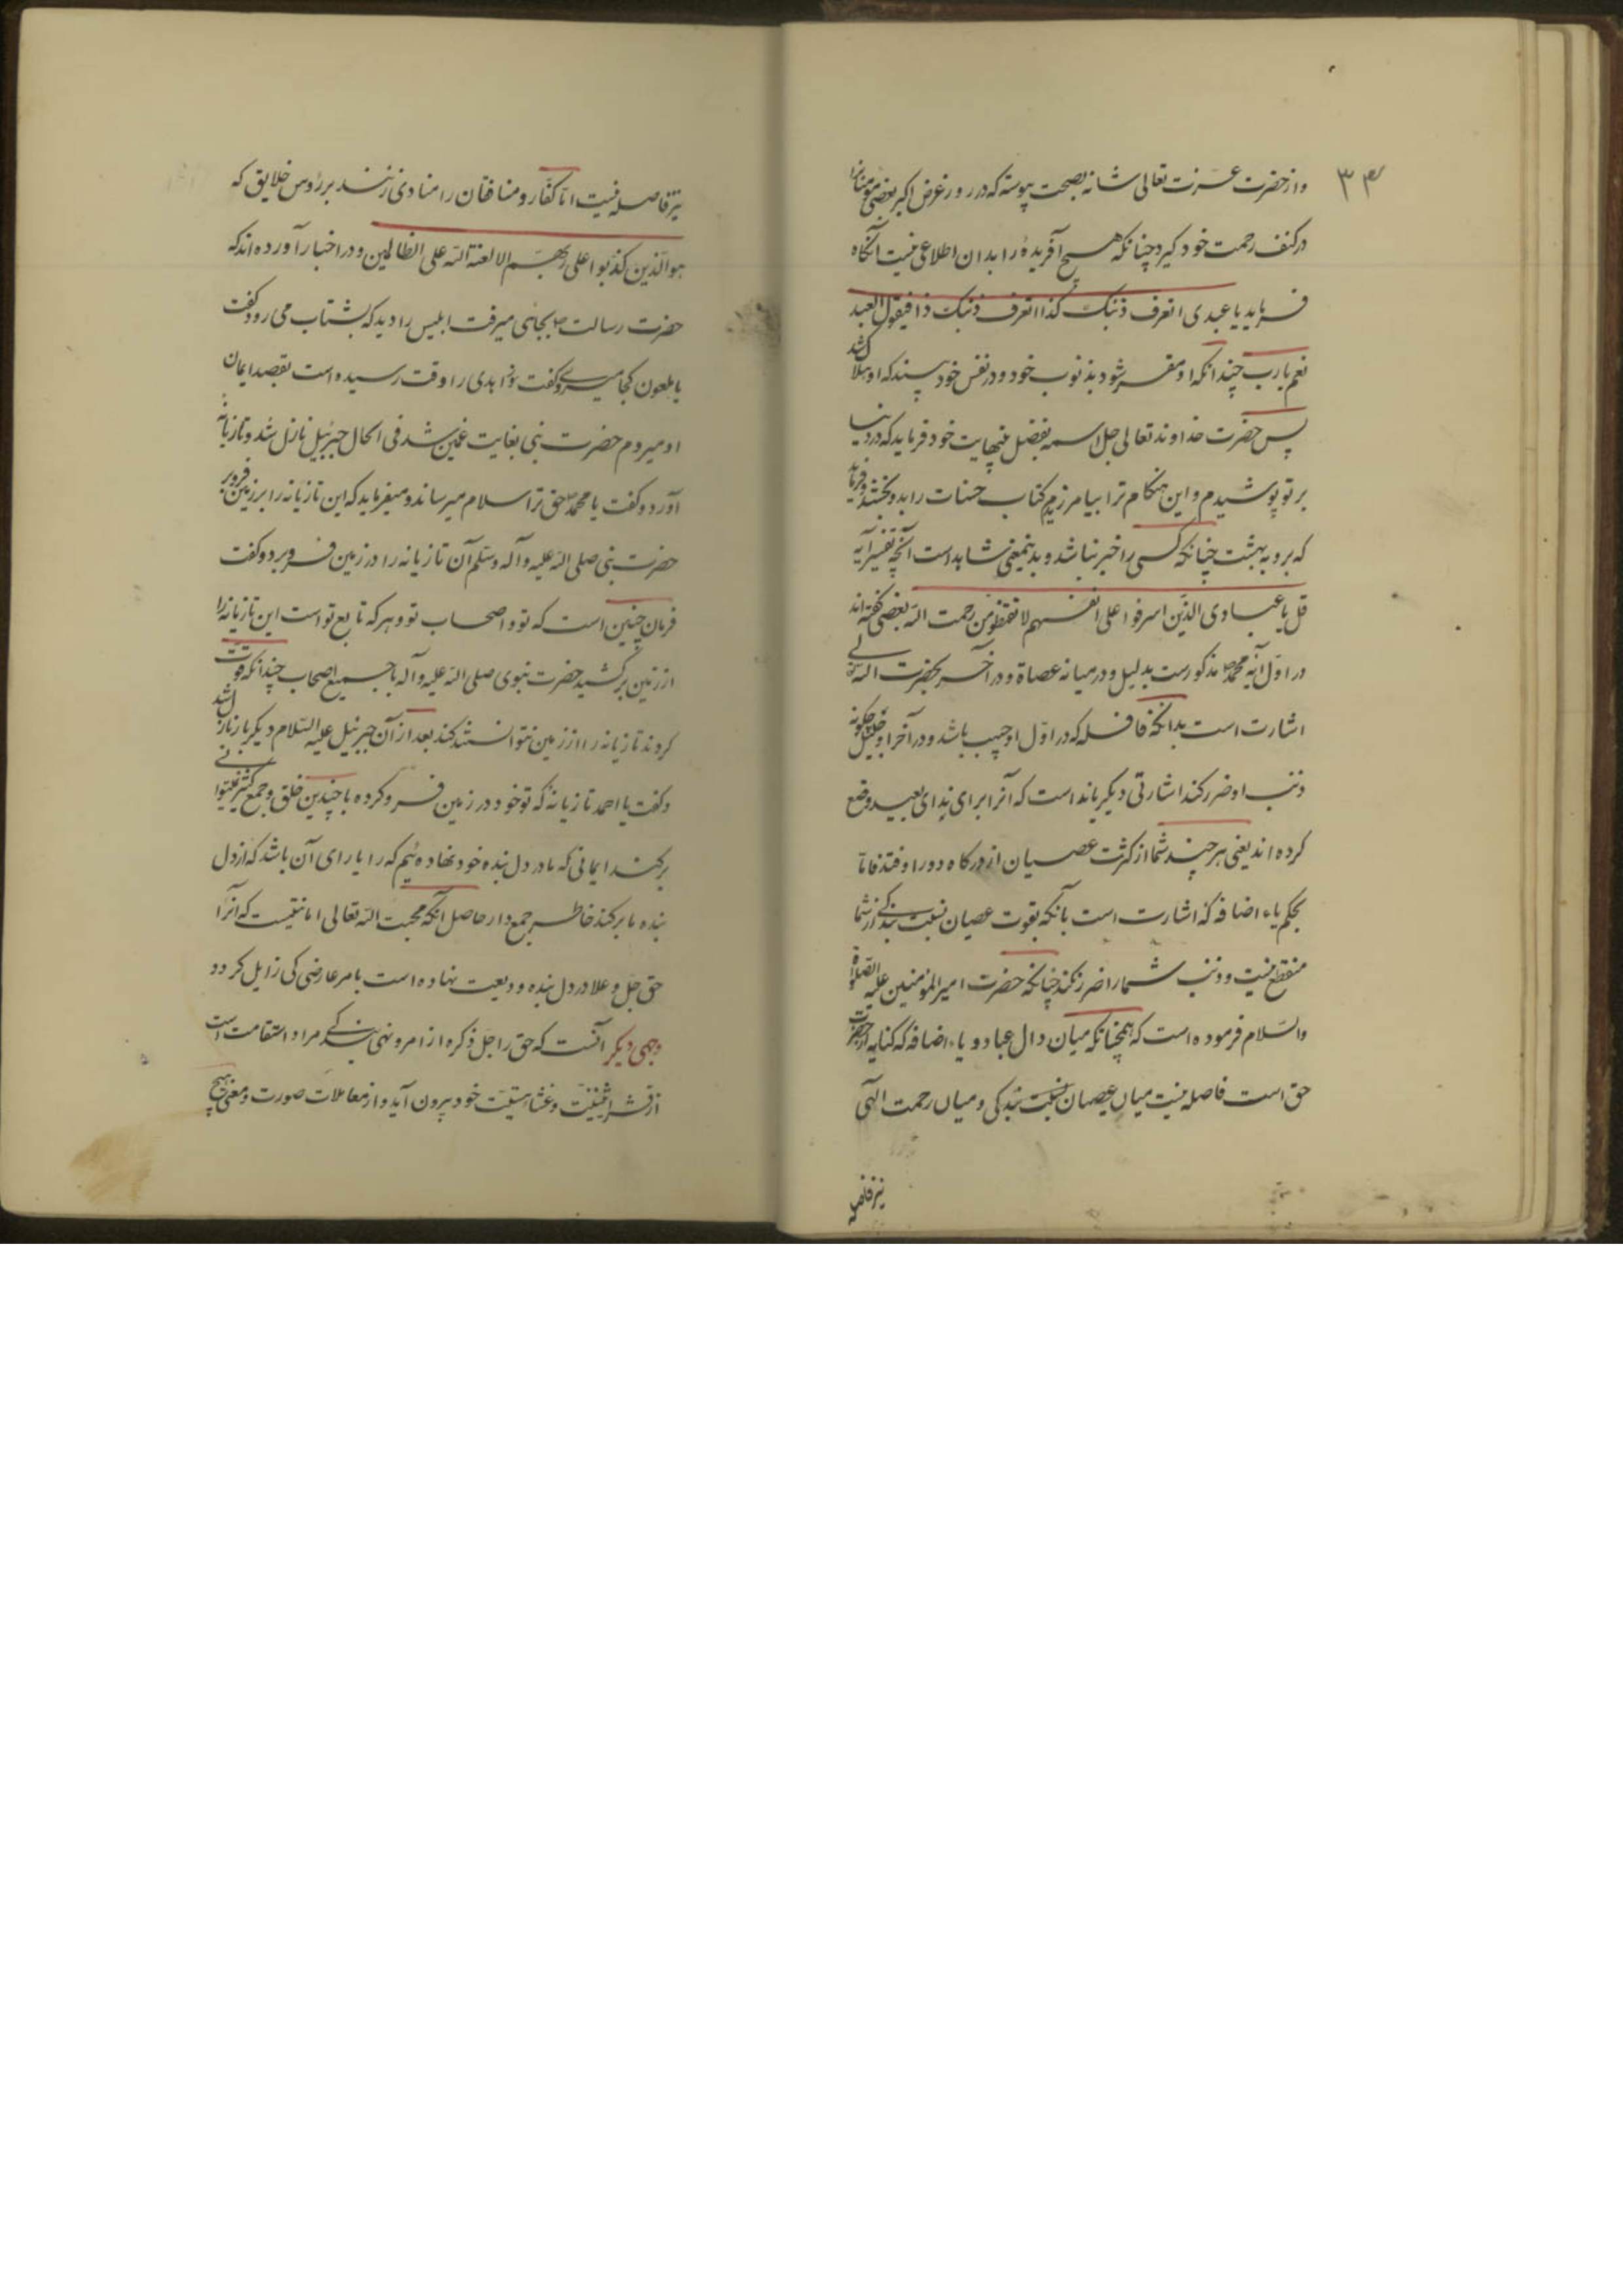 ۳۳
و از حضرت عزت تعالی شانه بصحت پیوسته که در روز عرض اکبر بعضی مؤمنانرا
در کنف رحمت خود گیرد چنانکه هیچ آفریده را بدان اطلاعی نیست آنگاه
فرماید یا عبدی اتعرف ذنبک کذا اتعرف ذنبک ذا فیقول العبد
نعم یا رب چندانکه او مقر شود بذنوب خود و در نفس خود بیند که او هلاک شد
پس حضرت خداوند تعالی جل اسمه بفضل بینهایت خود فرماید که در دنیا
بر تو پوشیدم و این هنگام ترا بیامرزم کتاب حسنات را بدو بخشند و فرماید
که برو به بهشت چنانکه کسی را خبر نباشد و بدینمعنی شاهد است آنچه تفسیر آیه
قل یا عبادی الذین اسرفوا علی انفسهم لا تقنطوا من رحمت الله بعضی گفته اند
در اول آیه محمد مذکورست بدلیل و در میانه عصاة و در آخر بحضرت الهی
اشارت است بدانکه قافله که در اول او حبیب باشد و در آخر او جلیل چگونه
ذنب او ضرر کند اشارتی دیگر یاند است که آنرا برای ندای بعید وضع
کرده اند یعنی هر چند شما از کثرت عصیان از درگاه دور افتد فاما
بحکم یاء اضافه که اشارت است بانکه بقوت عصیان نسبت بندگی از شما
منقطع نیست و ذنب شما را ضرر نکند چنانکه حضرت امیر المؤمنین علیه الصلواة
والسلام فرموده است که همچنانکه میان دال عباد و یاء اضافه که کنایه از حضرت
حق است فاصله نیست میان عصیان نسبت بندگی و میان رحمت الهی
نیز فاصله
نیز فاصله نیست اما کفار و منافقان را منادی زنند بر رؤس خلایق که
هو الذین کذبوا علی ربهم الا لعنة الله علی الظالمین و در اخبار آورده اند که
حضرت رسالت ص بجائی میرفت ابلیس را دید که بشتاب می رود گفت
یا ملعون کجا میروی گفت مؤمن ابدی را وقت رسیده است بقصد ایمان
او میروم حضرت نبی بغایت غمین شد فی الحال جبرئیل نازل شد و تازیانه
آورد و گفت یا محمد حق ترا سلام میرساند و میفرماید که این تازیانه را بر زمین فروبر
حضرت نبی صلی الله علیه و آله و سلم آن تازیانه را در زمین فرو برد و گفت
فرمان چنین است که تو و اصحاب تو و هر که تابع تو است این تازیانه را
از زمین برکشید حضرت نبوی صلی الله علیه و آله با جمیع اصحاب چندانکه قوت
کردند تازیانه را از زمین نتوانستند کند بعد از آن جبرئیل علیه السلام دیگر باز نازل شد
و گفت یا احمد تازیانه که تو خود در زمین فرو کرده با چندین خلق و جمع کثیر نمیتوانی
برکند ایمانی که ما در دل بنده خود نهاده ئیم که را یارای آن باشد که از دل
بنده ما برکند خاطر جمع دار حاصل آنکه محبت الله تعالی امانتیست که آنرا
حق جل و علا در دل بنده ودیعت نهاده است بامر عارضی کی زایل گردد
وجهی دیگر آنست که حق را جل ذکره از امر و نهی بندگی مراد استقامت است
از قشر اثنینیت و غشاء هستیت خود بیرون آید و از معاملات صورت و معنی هیچ